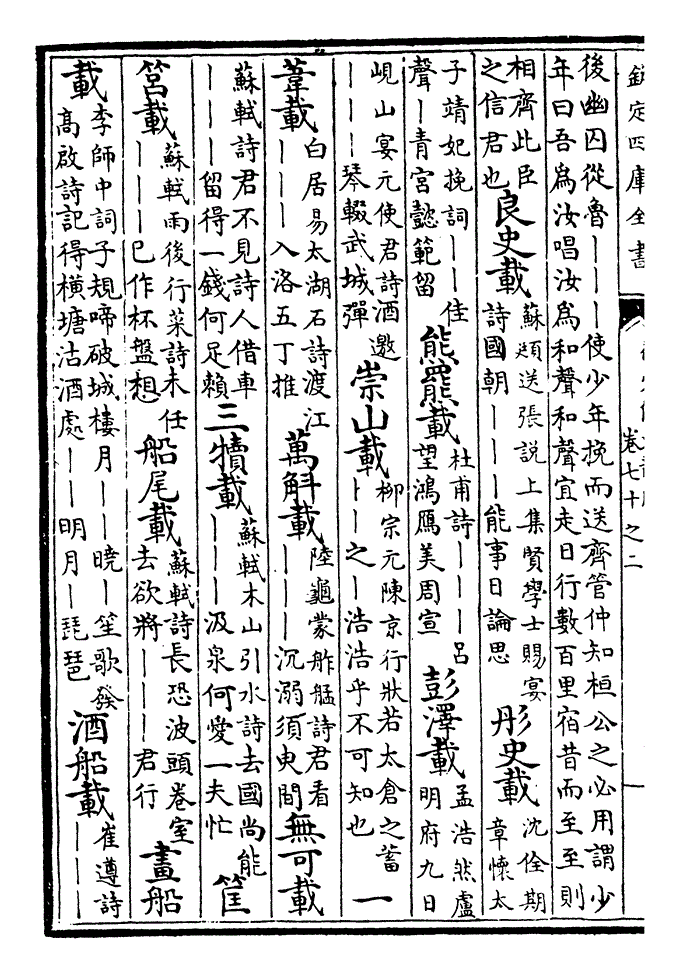 欽定四庫全書
卷七十之二
後幽囚從魯———使少年挽而送齊管仲知桓公之必用謂少
年曰吾為汝唱汝為和聲和聲宜走日行數百里宿昔而至至則
相齊此臣
之信君也
良史載
蘇頲送張說上集賢學士賜宴
詩國朝———能事日論思
彤史載
沈佺期
章懷太
子靖妃挽詞——佳
聲—青宮懿範留
熊羆載
杜甫詩———吕
望鴻鴈美周宣
彭澤載
孟浩然盧
明府九日
峴山宴元使君詩酒邀
———琴輟武城彈
崇山載
柳宗元陳京行狀若太倉之蓄
———之—浩浩乎不可知也
一
葦載
白居易太湖石詩渡江
———入洛五丁推
萬斛載
陸龜蒙舴艋詩君看
———沉溺須臾間
無可載
蘇軾詩君不見詩人借車
———留得一錢何足賴
三犢載
蘇軾木山引水詩去國尚能
———汲泉何愛一夫忙
筐
筥載
蘇軾雨後行菜詩未任
———已作杯盤想
船尾載
蘇軾詩長恐波頭卷室
去欲將———君行
畫船
載
李師中詞子規啼破城樓月——曉—笙歌發
高啟詩記得橫塘沽酒處——明月—琵琶
酒船載
崔遵詩
———